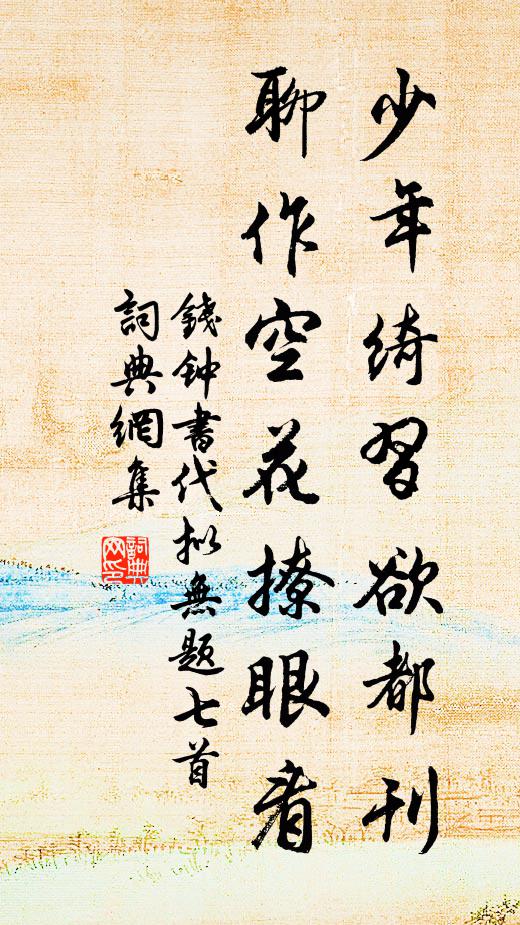 少年绮習欲都刊
聊作空花撩眼看
錢钟書代拟無题七首
詞典網集
詞典网印